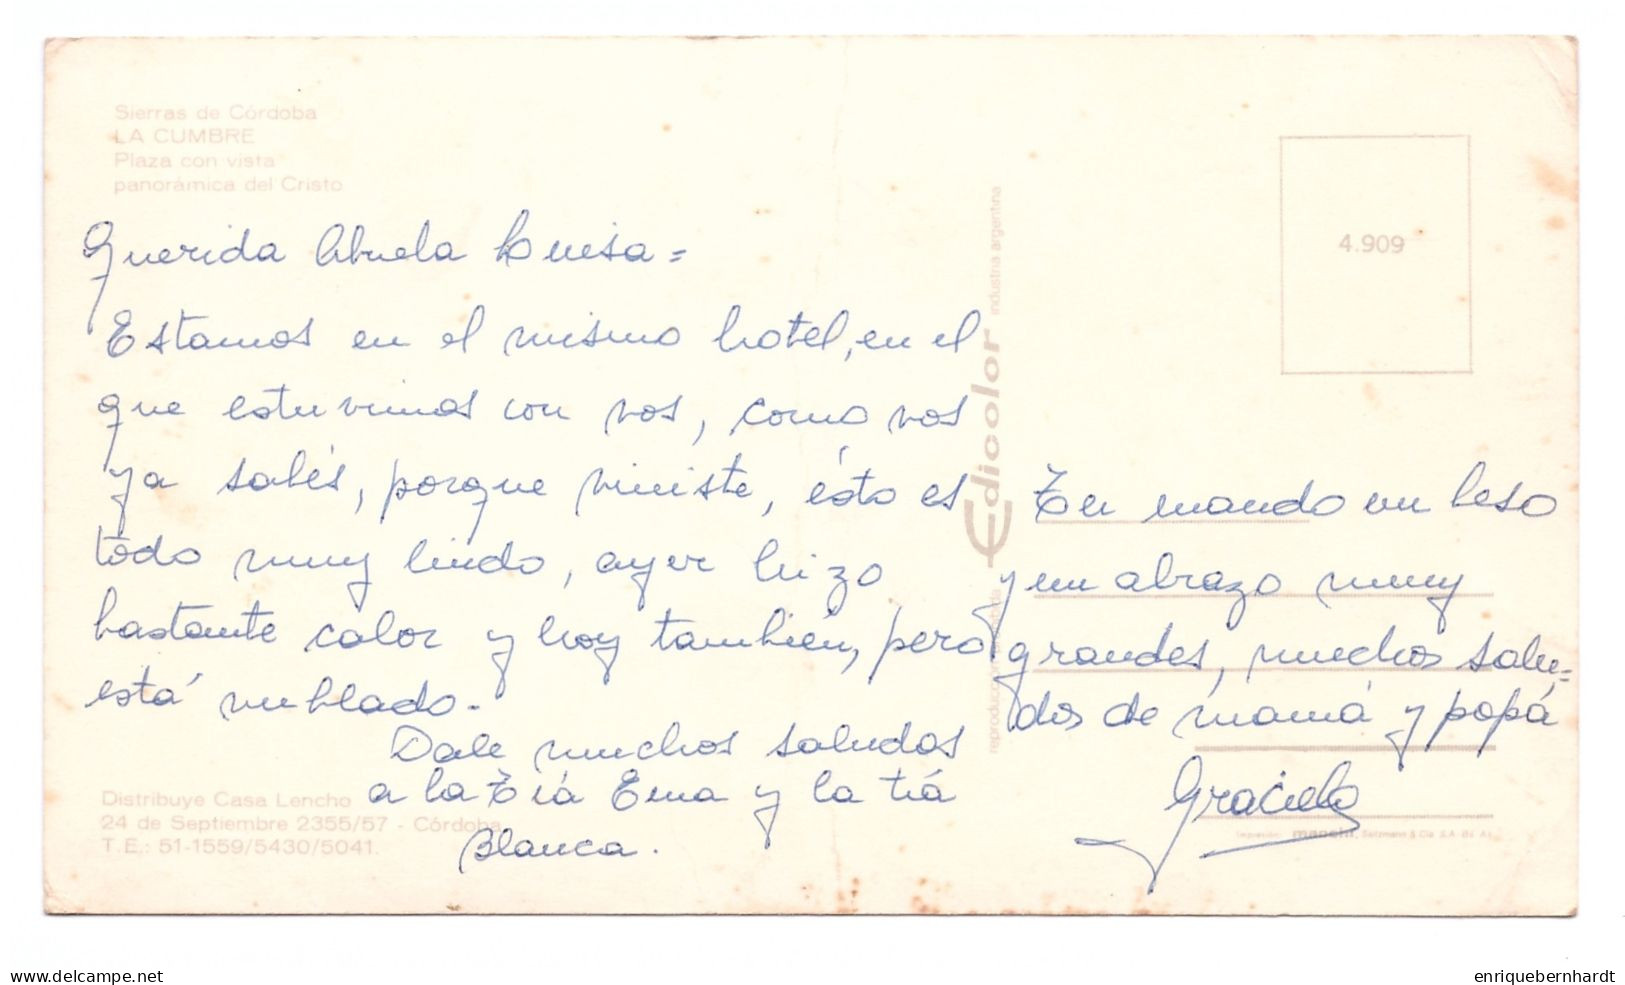 Sierras de Córdoba
LA CUMBRE
Plaza con vista
panorámica del Cristo
Querida Abuela Luisa =
Estamos en el mismo hotel, en el
que estuvimos con vos, como vos
ya sabés, porque viniste, ésto es
todo muy lindo, ayer hizo
bastante calor y hoy también, pero
está nublado.-
Dale muchos saludos
a la tía Ema y la tía
Blanca.
Distribuye Casa Lencho
24 de Septiembre 2355/57 - Córdoba
T.E.: 51-1559/5430/5041.
Edicolor industria argentina
4.909
Te mando un beso
y un abrazo muy
grandes, muchos salu=
dos de mamá y popá
Graciela
delcampe.net
enriquebernhardt